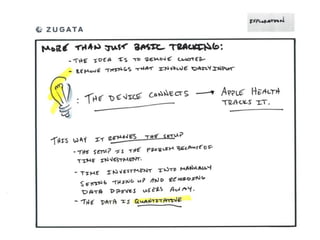 EXPLORATION
ZUGATA
MORE THAN JUST BASIC TRACKING:
- THE IDEA IS TO REMOVE CLUTTER
- REMOVE THINGS THAT INVOLVE DAILY INPUT
: THE DEVICE CONNECTS → APPLE HEALTH
TRACKS IT.
THIS WAY IT REMOVES THE SETUP
- THE SETUP IS THE PROBLEM BECAUSE OF
TIME INVESTMENT.
- TIME INVESTMENT INTO MANUALLY
SETTING THINGS UP AND
DATA DRIVES USERS AWAY.
- THE DATA IS QUANTITATIVE